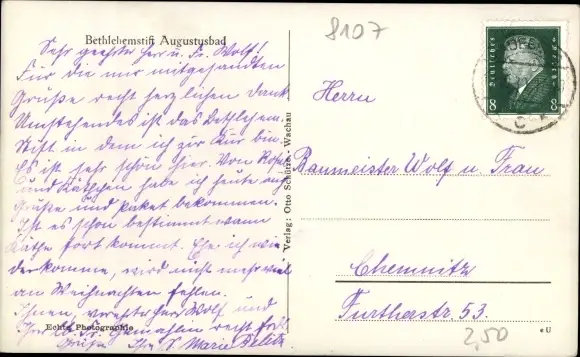 Bethlehemstift Augustusbad
Sehr geehrter Herr u. Fr. Wolf!
Für die mir mitgesandten
Grüße recht herzlichen Dank
Umstehendes ist das Bethlehem-
stift in dem ich zur Kur bin.
Es ist sehr schön hier. Von
und Käthchen habe ich heute auch
Grüße und Paket bekommen.
Ist es schon bestimmt wann
Käthe fort kommt. Ehe ich wie-
derkomme, wird nicht mehr viel
an Weihnachten fehlen.
Ihnen, Wolf und
Ihrer Gemahlin recht
Grüße Marie
Echte Photographie
Verlag: Otto Schütze - Wachau
8107
Deutsches Reich
8 8
Herrn
Baumeister Wolf u. Frau
Chemnitz
Fürtherstr. 53.
2,50